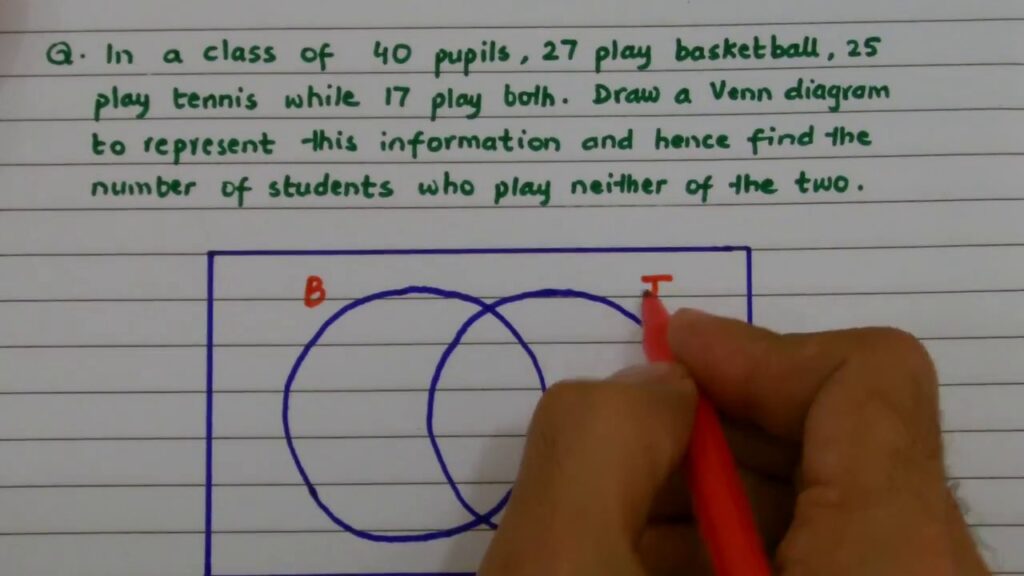 Q. In a class of 40 pupils, 27 play basketball, 25
play tennis while 17 play both. Draw a Venn diagram
to represent this information and hence find the
number of students who play neither of the two.
B T